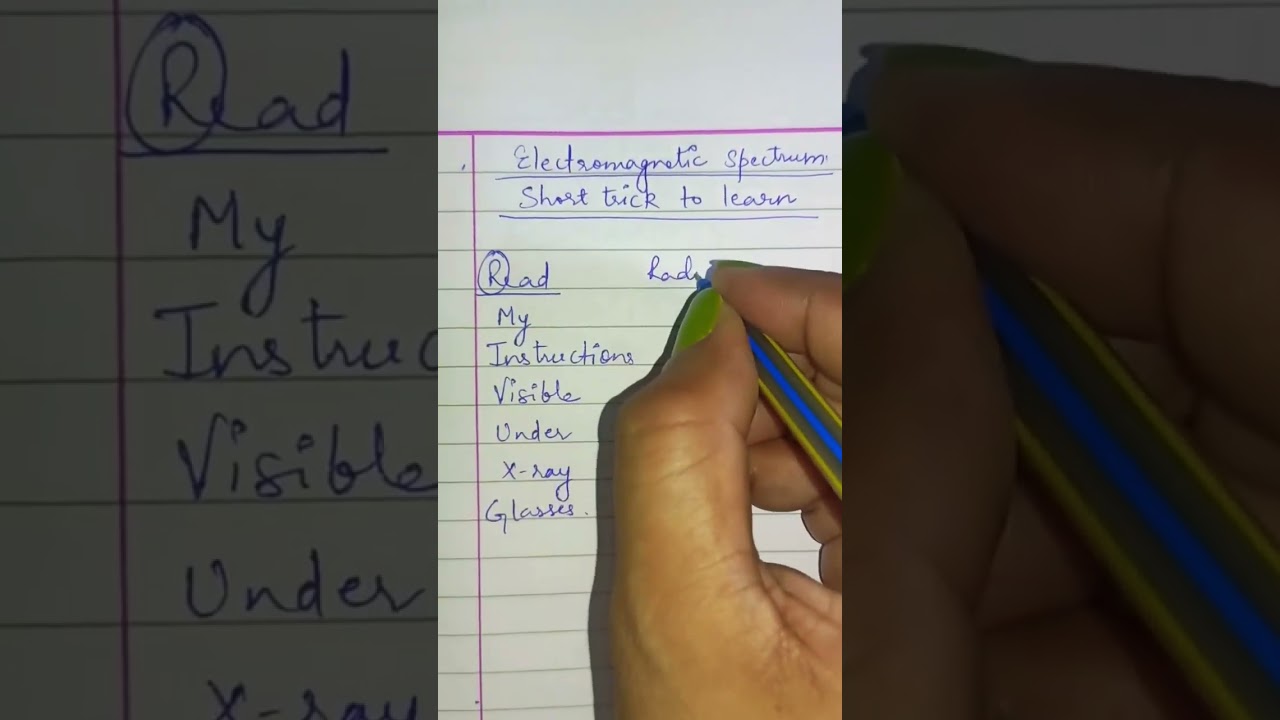 Electromagnetic Spectrum
Short trick to learn
Read Rad
My
Instructions
Visible
Under
X-ray
Glasses.